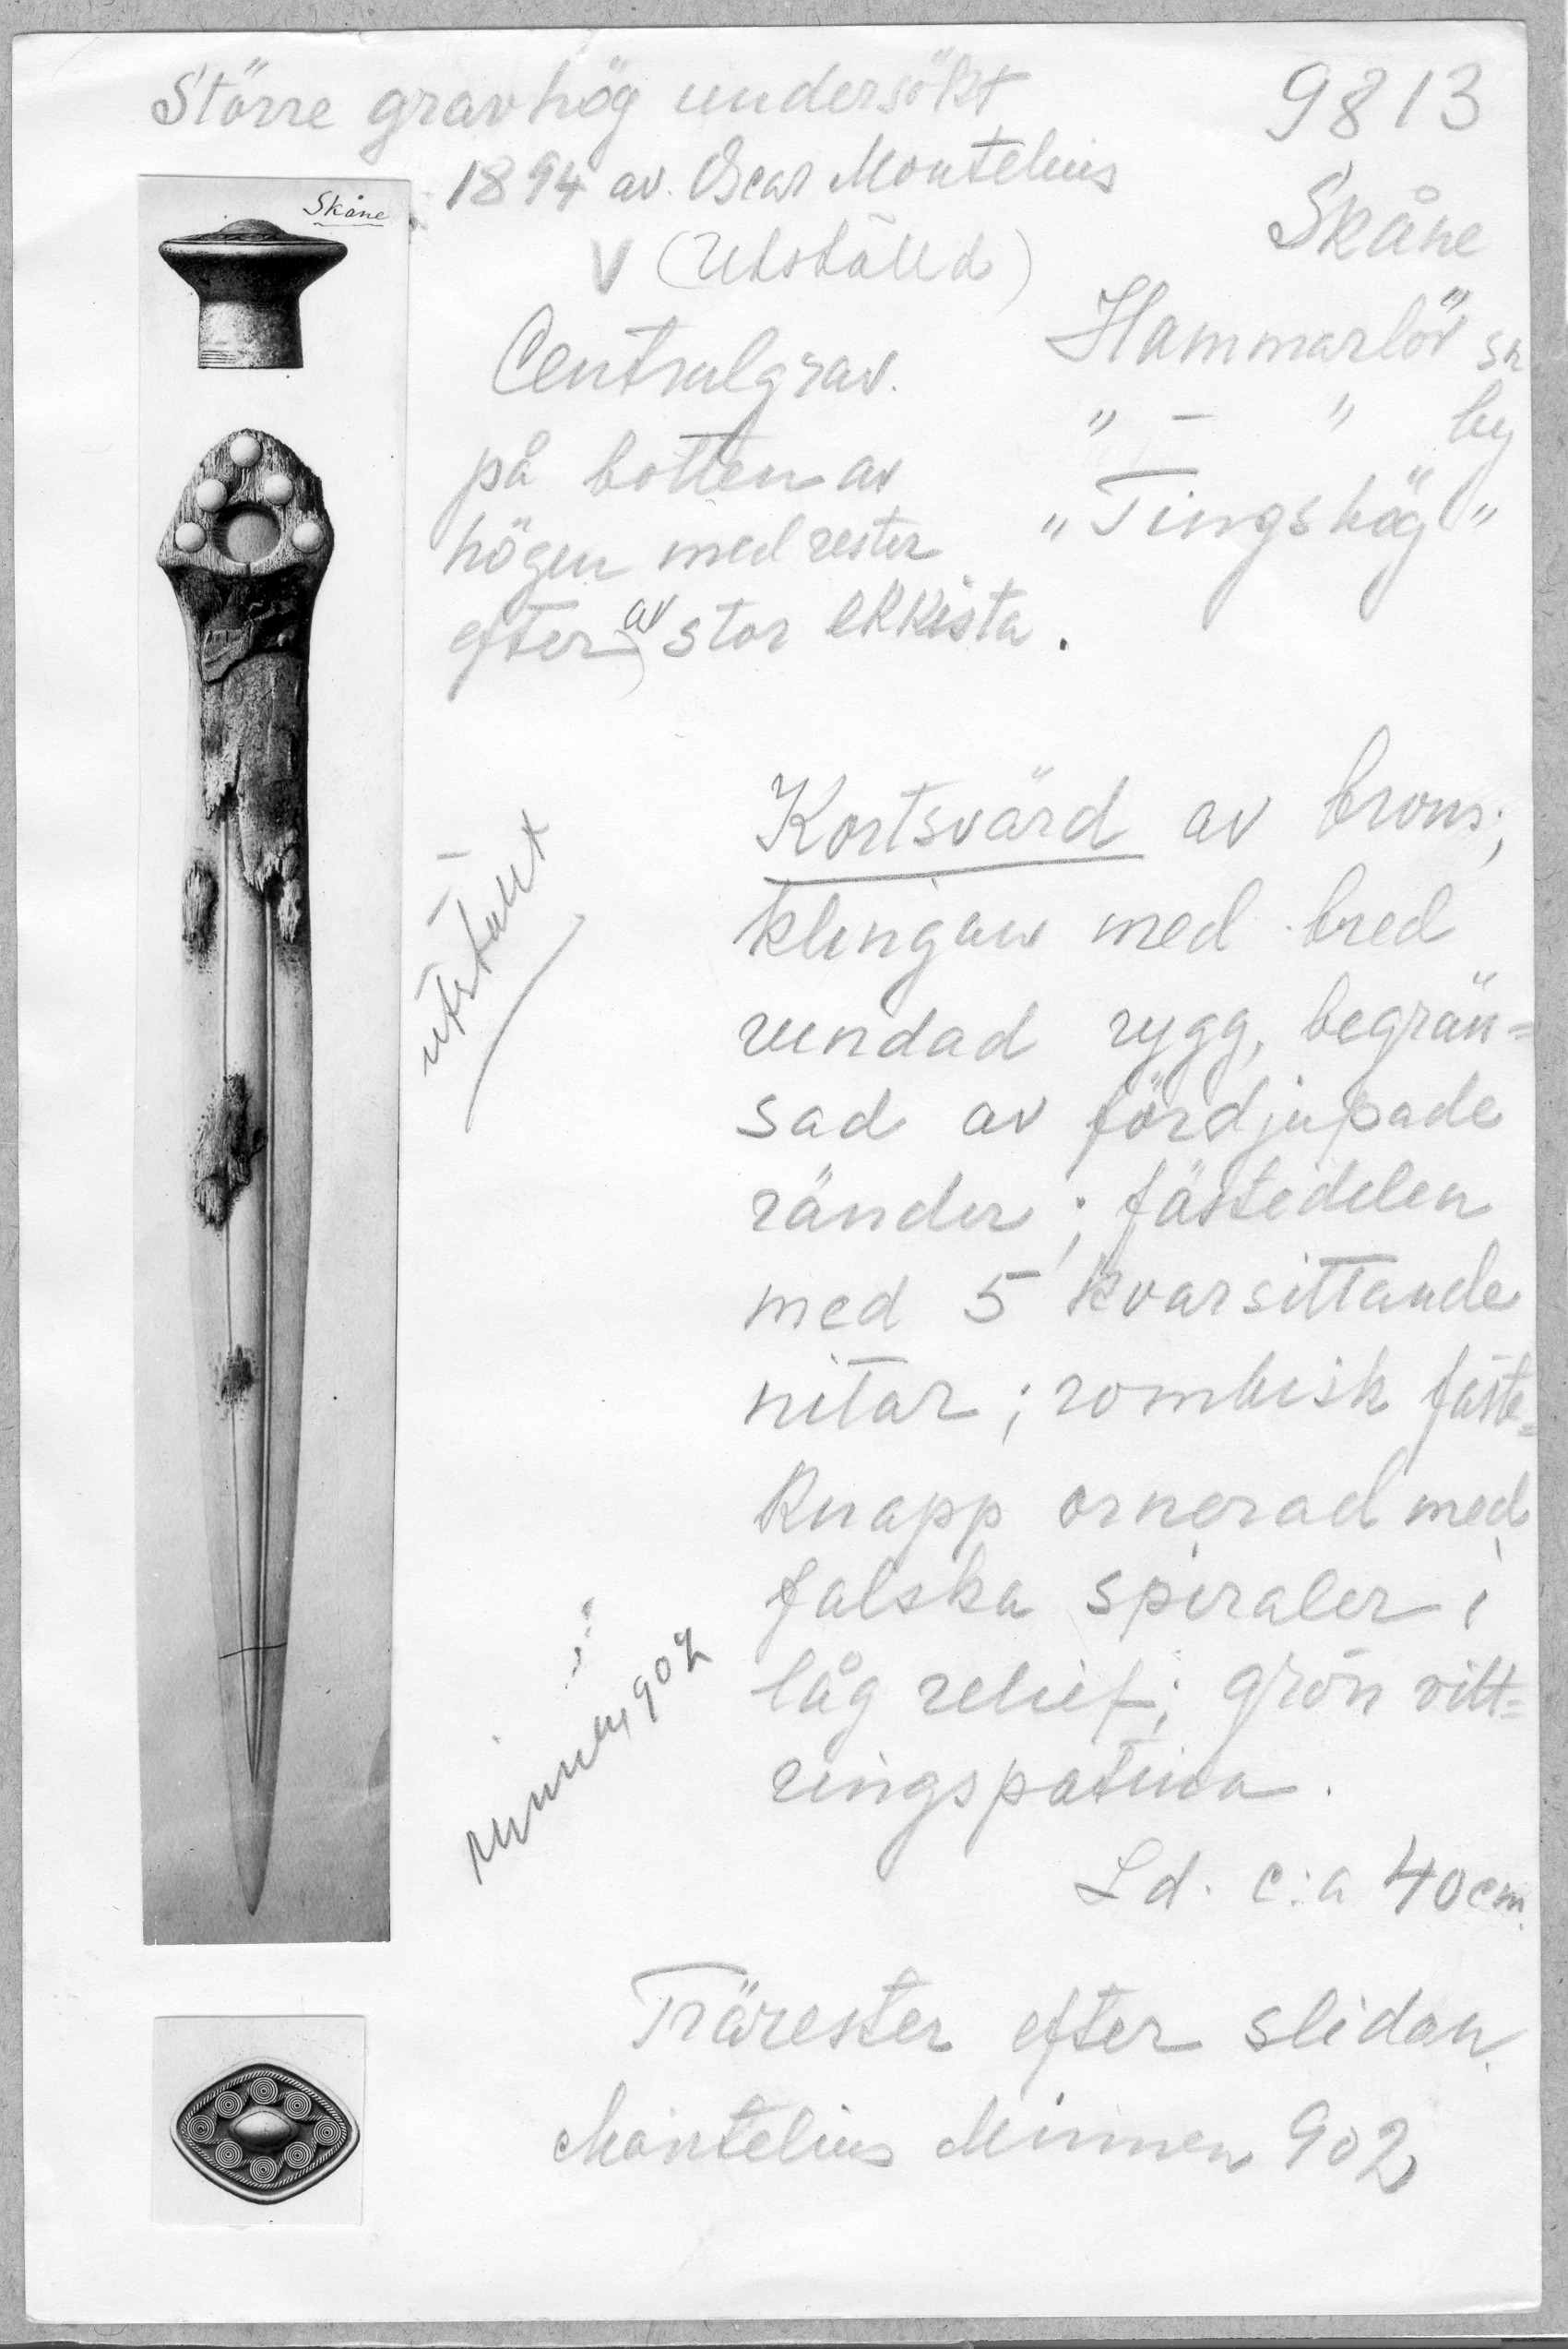 Större gravhög undersökt
1894 av. Oscar Montelius
V (Utställd)
9813
Skåne
Hammarlöv sn
" – " by
"Tingshög"
Skåne
Centralgrav.
på botten av
högen med rester
efter av stor ekkista.
utställt
Kortsvärd av brons;
klingan med bred
rundad rygg, begrän=
sad av fördjupade
ränder; fästedelen
med 5 kvarsittande
nitar; rombisk fäste=
knapp ornerad med
falska spiraler i
låg relief; grön vitt=
ringspatina.
Ld. c:a 40cm.
Minnen 902
Trärester efter slidan.
Montelius Minnen 902